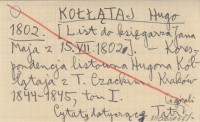 KOŁŁĄTAJ Hugo
1802. [List do księgarza Jana
Maja z 15.VII.1802r]. Kores-
pondencja listowna Hugona Koł-
łątaja z T. Czackim. Kraków
1844-1845, tom I.
Cytaty dotyczące Tatr